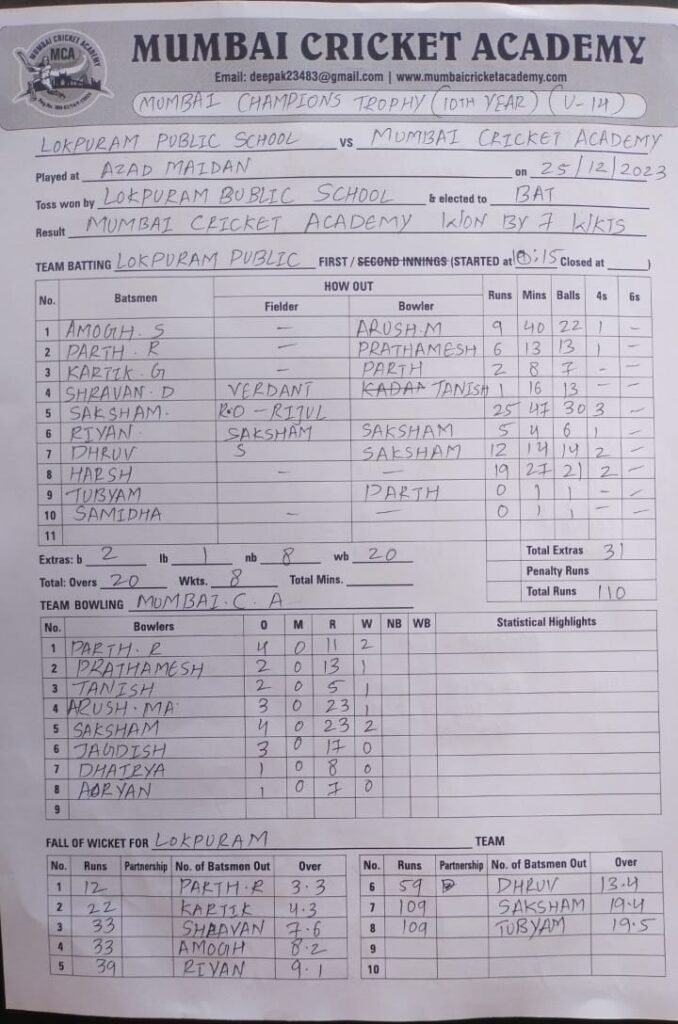 MUMBAI CRICKET ACADEMY
MCA
MUMBAI CRICKET ACADEMY
Email: deepak23483@gmail.com | www.mumbaicricketacademy.com
MUMBAI CHAMPIONS TROPHY (10TH YEAR) (U-14)
LOKPURAM PUBLIC SCHOOL vs MUMBAI CRICKET ACADEMY
Played at AZAD MAIDAN on 25/12/2023
Toss won by LOKPURAM BUBLIC SCHOOL & elected to BAT
Result MUMBAI CRICKET ACADEMY WON BY 7 WKTS
TEAM BATTING LOKPURAM PUBLIC FIRST / SECOND INNINGS (STARTED at :15 Closed at )
No. Batsmen HOW OUT Runs Mins Balls 4s 6s
Fielder Bowler
1 AMOGH. S – ARUSH.M 9 40 22 1 –
2 PARTH . R – PRATHAMESH 6 13 13 1 –
3 KARTIK. G – PARTH 2 8 7 - –
4 SHRAVAN. D VERDANT TANISH 1 16 13 – –
5 SAKSHAM. R.O – RIJUL 25 47 30 3 –
6 RIYAN. SAKSHAM SAKSHAM 5 4 6 1 –
7 DHRUV S SAKSHAM 12 14 14 2 –
8 HARSH – – 19 27 21 2 –
9 TUBYAM PARTH 0 1 1 – –
10 SAMIDHA – – 0 1 1 – –
11
Extras: b 2 lb 1 nb 8 wb 20 Total Extras 31
Penalty Runs
Total: Overs 20 Wkts. 8 Total Mins. Total Runs 110
TEAM BOWLING MUMBAI. C. A
No. Bowlers O M R W NB WB Statistical Highlights
1 PARTH. R 4 0 11 2
2 PRATHAMESH 2 0 13 1
3 TANISH 2 0 5 1
4 ARUSH. MA 3 0 23 1
5 SAKSHAM 4 0 23 2
6 JAGDISH 3 0 17 0
7 DHAIRYA 1 0 8 0
8 AARYAN 1 0 7 0
9
FALL OF WICKET FOR LOKPURAM TEAM
No. Runs Partnership No. of Batsmen Out Over
1 12 PARTH.R 3.3
2 22 KARTIK 4.3
3 33 SHRAVAN 7.6
4 33 AMOGH 8.2
5 39 RIYAN 9.1
No. Runs Partnership No. of Batsmen Out Over
6 59 DHRUV 13.4
7 109 SAKSHAM 19.4
8 109 TUBYAM 19.5
9
10